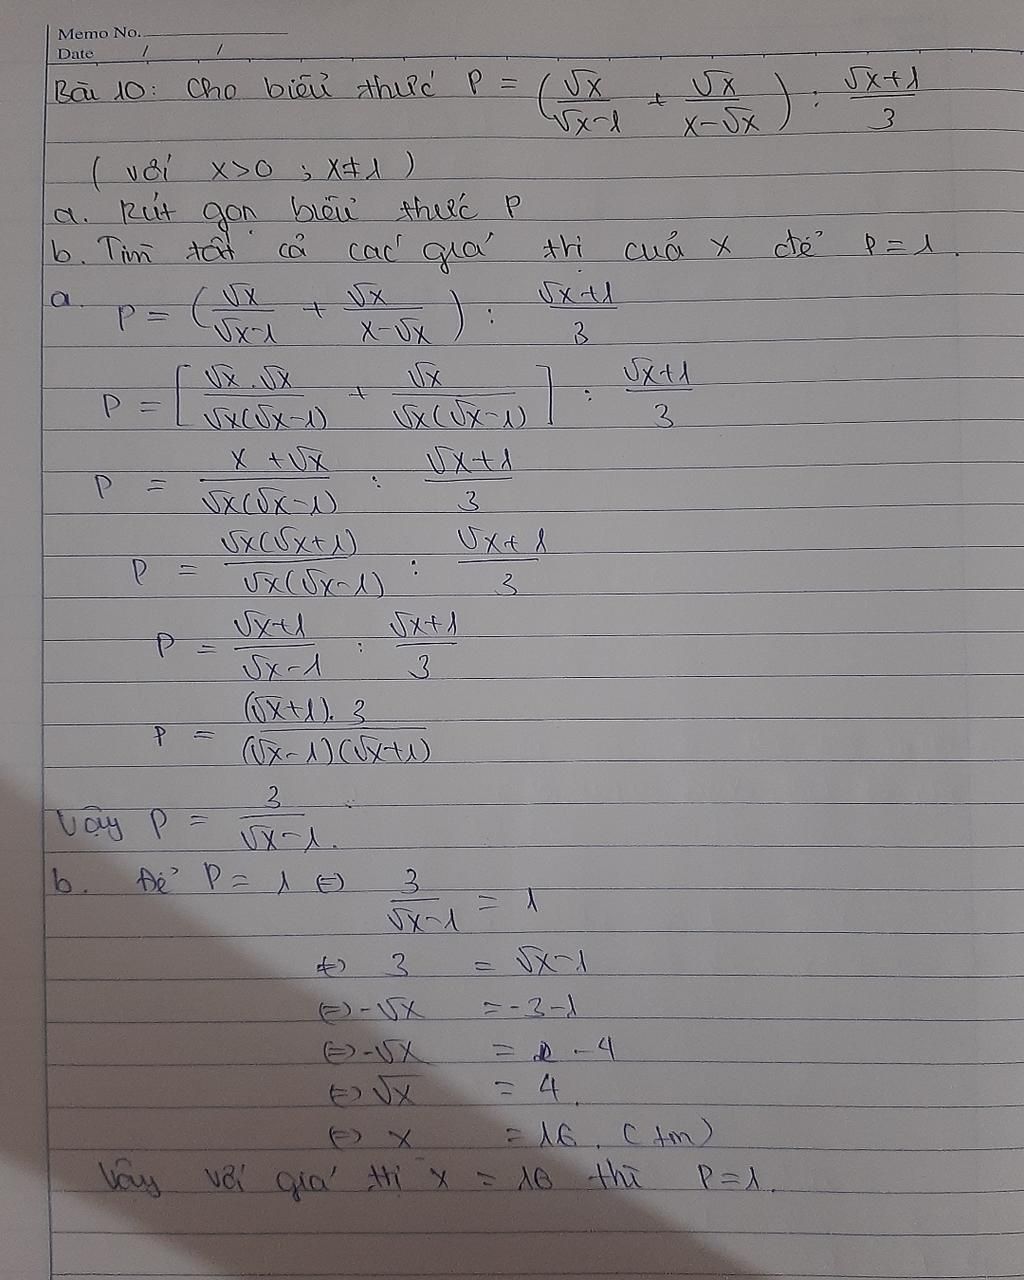 Memo No.
Date / /
Bài 10: Cho biểu thức P = (√x/(√x-1) + √x/(x-√x)) : (√x+1)/3
( với x>0 ; x≠1 )
a. Rút gọn biểu thức P
b. Tìm tất cả các giá trị của x để P=1.
a. P = (√x/(√x-1) + √x/(x-√x)) : (√x+1)/3
P = [√x.√x/(√x(√x-1)) + √x/(√x(√x-1))] : (√x+1)/3
P = (x+√x)/(√x(√x-1)) : (√x+1)/3
P = √x(√x+1)/(√x(√x-1)) : (√x+1)/3
P = (√x+1)/(√x-1) : (√x+1)/3
P = (√x+1).3/((√x-1)(√x+1))
Vậy P = 3/(√x-1).
b. Để P = 1 (=) 3/(√x-1) = 1
(=) 3 = √x-1
(=) -√x = -3-1
(=) -√x = -4
(=) √x = 4.
(=) x = 16. (tm)
Vậy với giá trị x = 16 thì P=1.